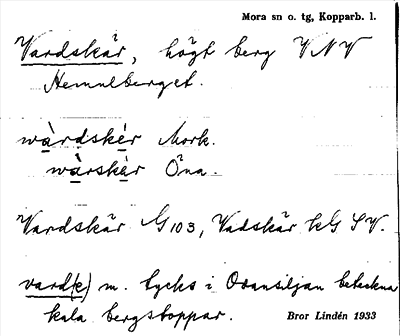 Mora sn o. tg, Kopparb. l.
Vardskär, högt berg VNV
Hemulberget.
wàrdskèr Mork.
wàrskèr Öna.
Vardskär G 103, Vadskär kG SV.
vard(e) m. tycks i Ovansiljan beteckna
kala bergstoppar.
Bror Lindén 1933